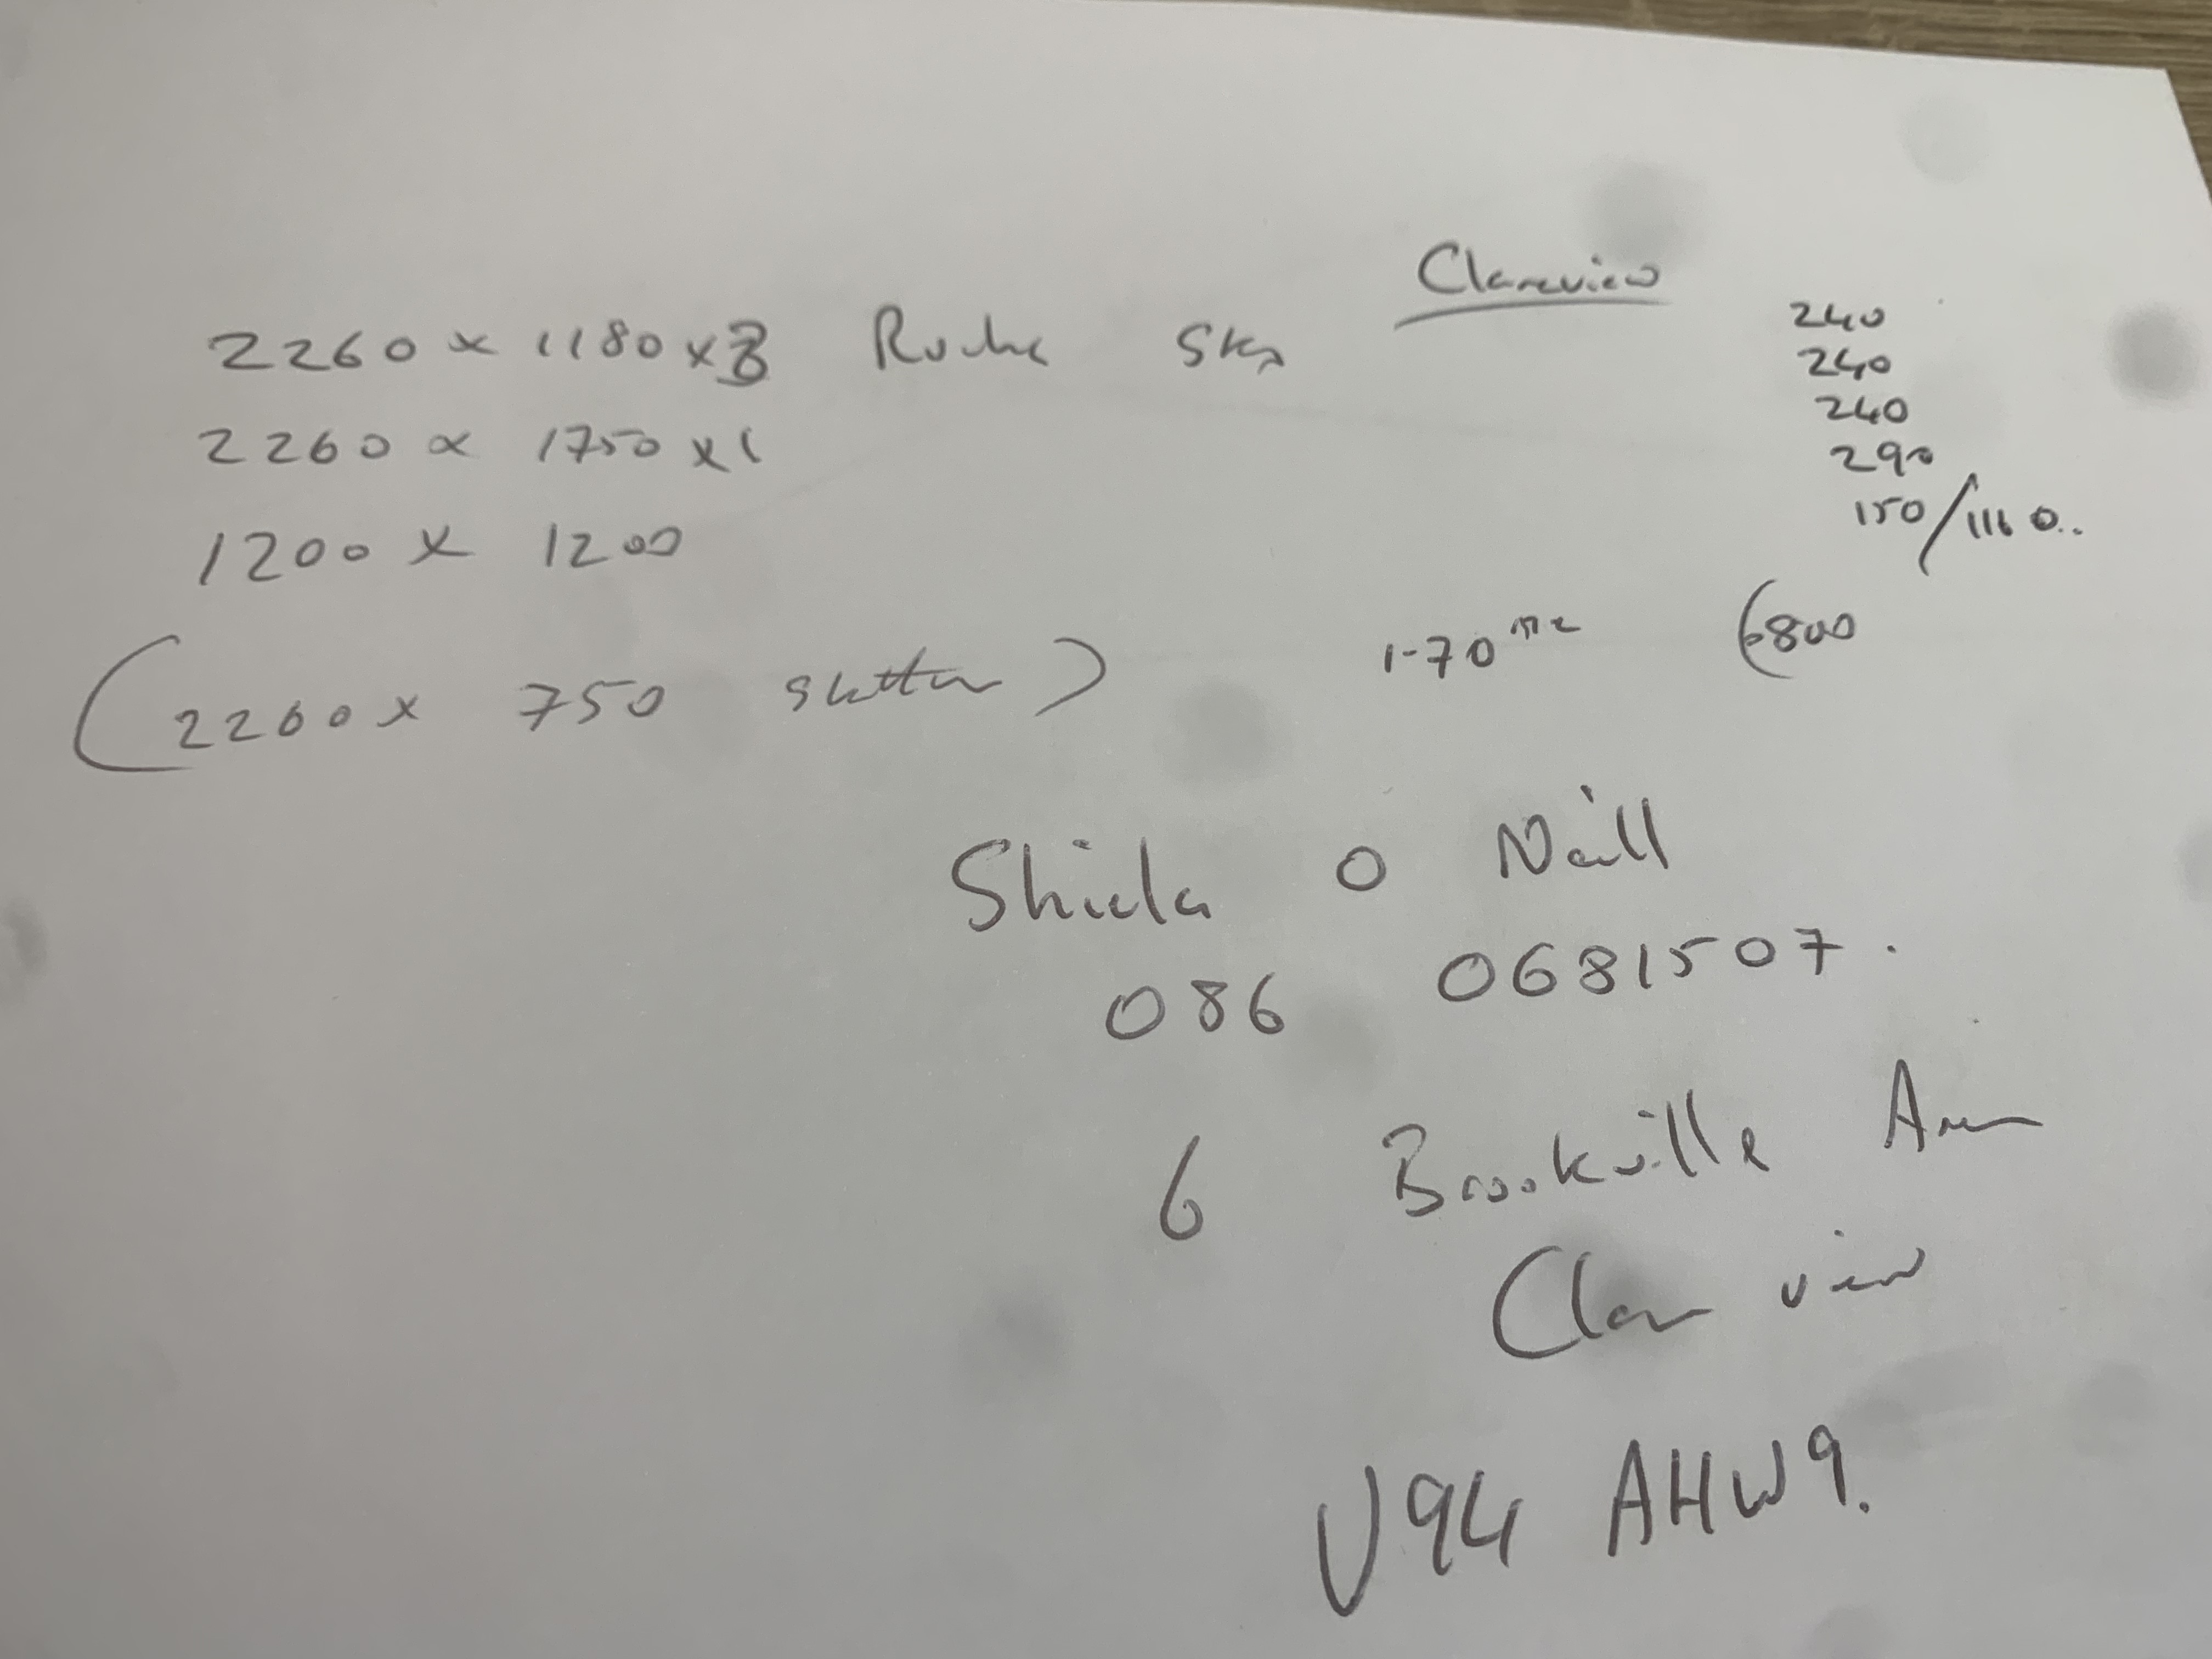 Clareview
2260 x 1180 x 3 Roche Sky
2260 x 1750 x 1
1200 x 1200
(2260 x 750 shutter)
240
240
240
290
150/1160..
1-70 m2 (6800
Shiela O Neill
086 0681507.
6 Brookville Aven
Clare view
V94 AHW9.